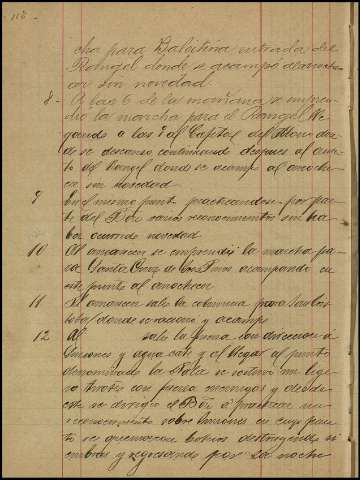 cha para Balestina entrada del
Rangel donde se acampó al anoche
cer sin novedad
8 - A las 6 de la mañana se empren
dió la marcha para el Rangel lle
gando a las 9 al Cafetal del
de se descansó continuando después al
to del Rangel donde se acampó al anoche
cer sin novedad
9 En el mismo punto practicandose por par
te del Bón varios reconocimientos sin ha
ber ocurrido novedad
10 Al amanecer se emprendió la marcha pa
ra Santa Cruz de los Pinos acampando en
este punto al anochecer
11 Al amanecer salio la columna para San Cris
tobal donde se racionó y acampó
12 Al salio la fuerza con direccion á
Limones y agua sale y al llegar al punto
denominado la se sostuvo un lige
ro tiroteo con fuerza enemiga y desde
este se dirigió el Bón á practicar un
reconocimiento sobre Limones en cuyo pun
to se quemaron bohios destruyendo si
embras y regresando por la noche